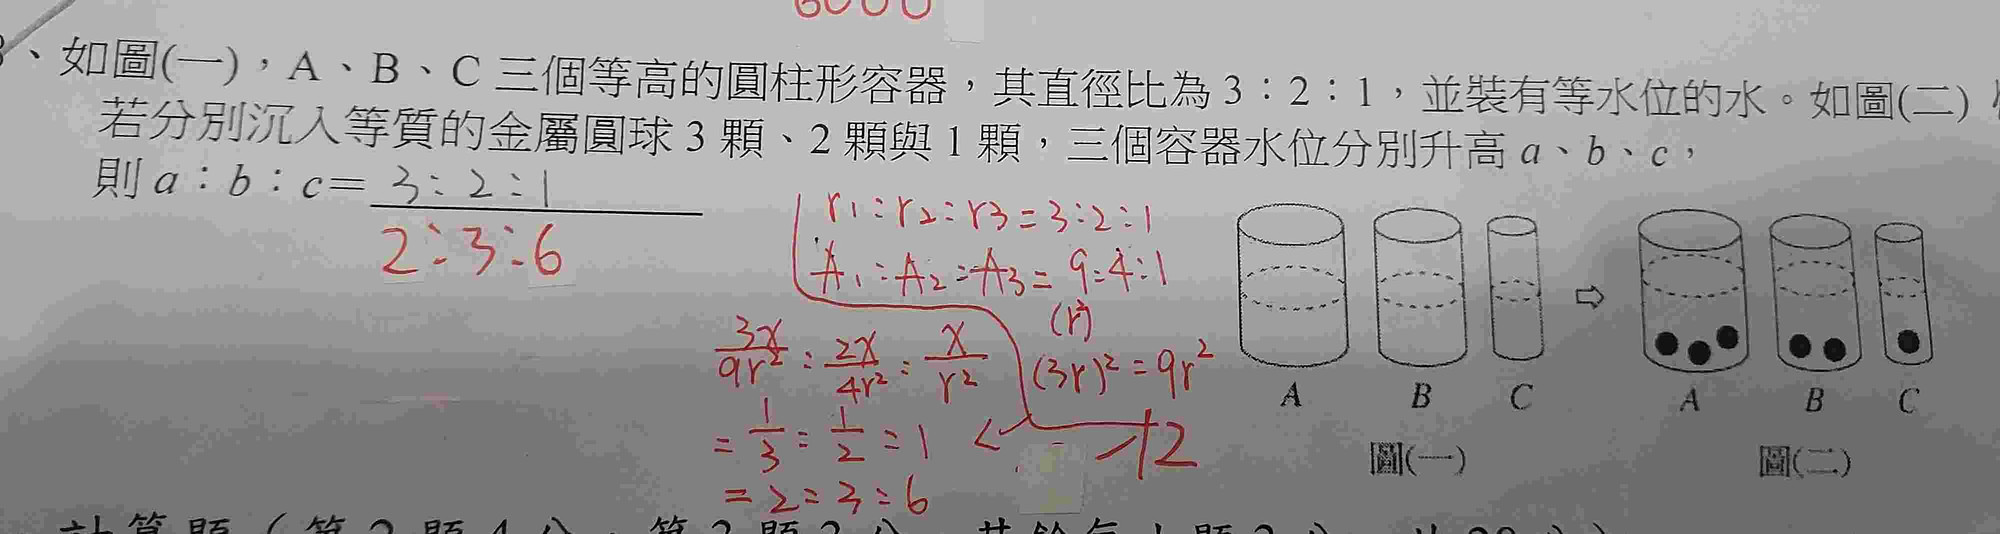 6000
、如圖(一)，A、B、C 三個等高的圓柱形容器，其直徑比為 3：2：1，並裝有等水位的水。如圖(二)
若分別沉入等質的金屬圓球 3 顆、2 顆與 1 顆，三個容器水位分別升高 a、b、c，
則 a：b：c= 3:2:1
2:3:6
r1:r2:r3=3:2:1
A1:A2:A3=9:4:1
(r²)
3x/9r² : 2x/4r² : x/r²
(3r)²=9r²
=1/3:1/2:1
=2:3:6
A B C
圖(一)
A B C
圖(二)